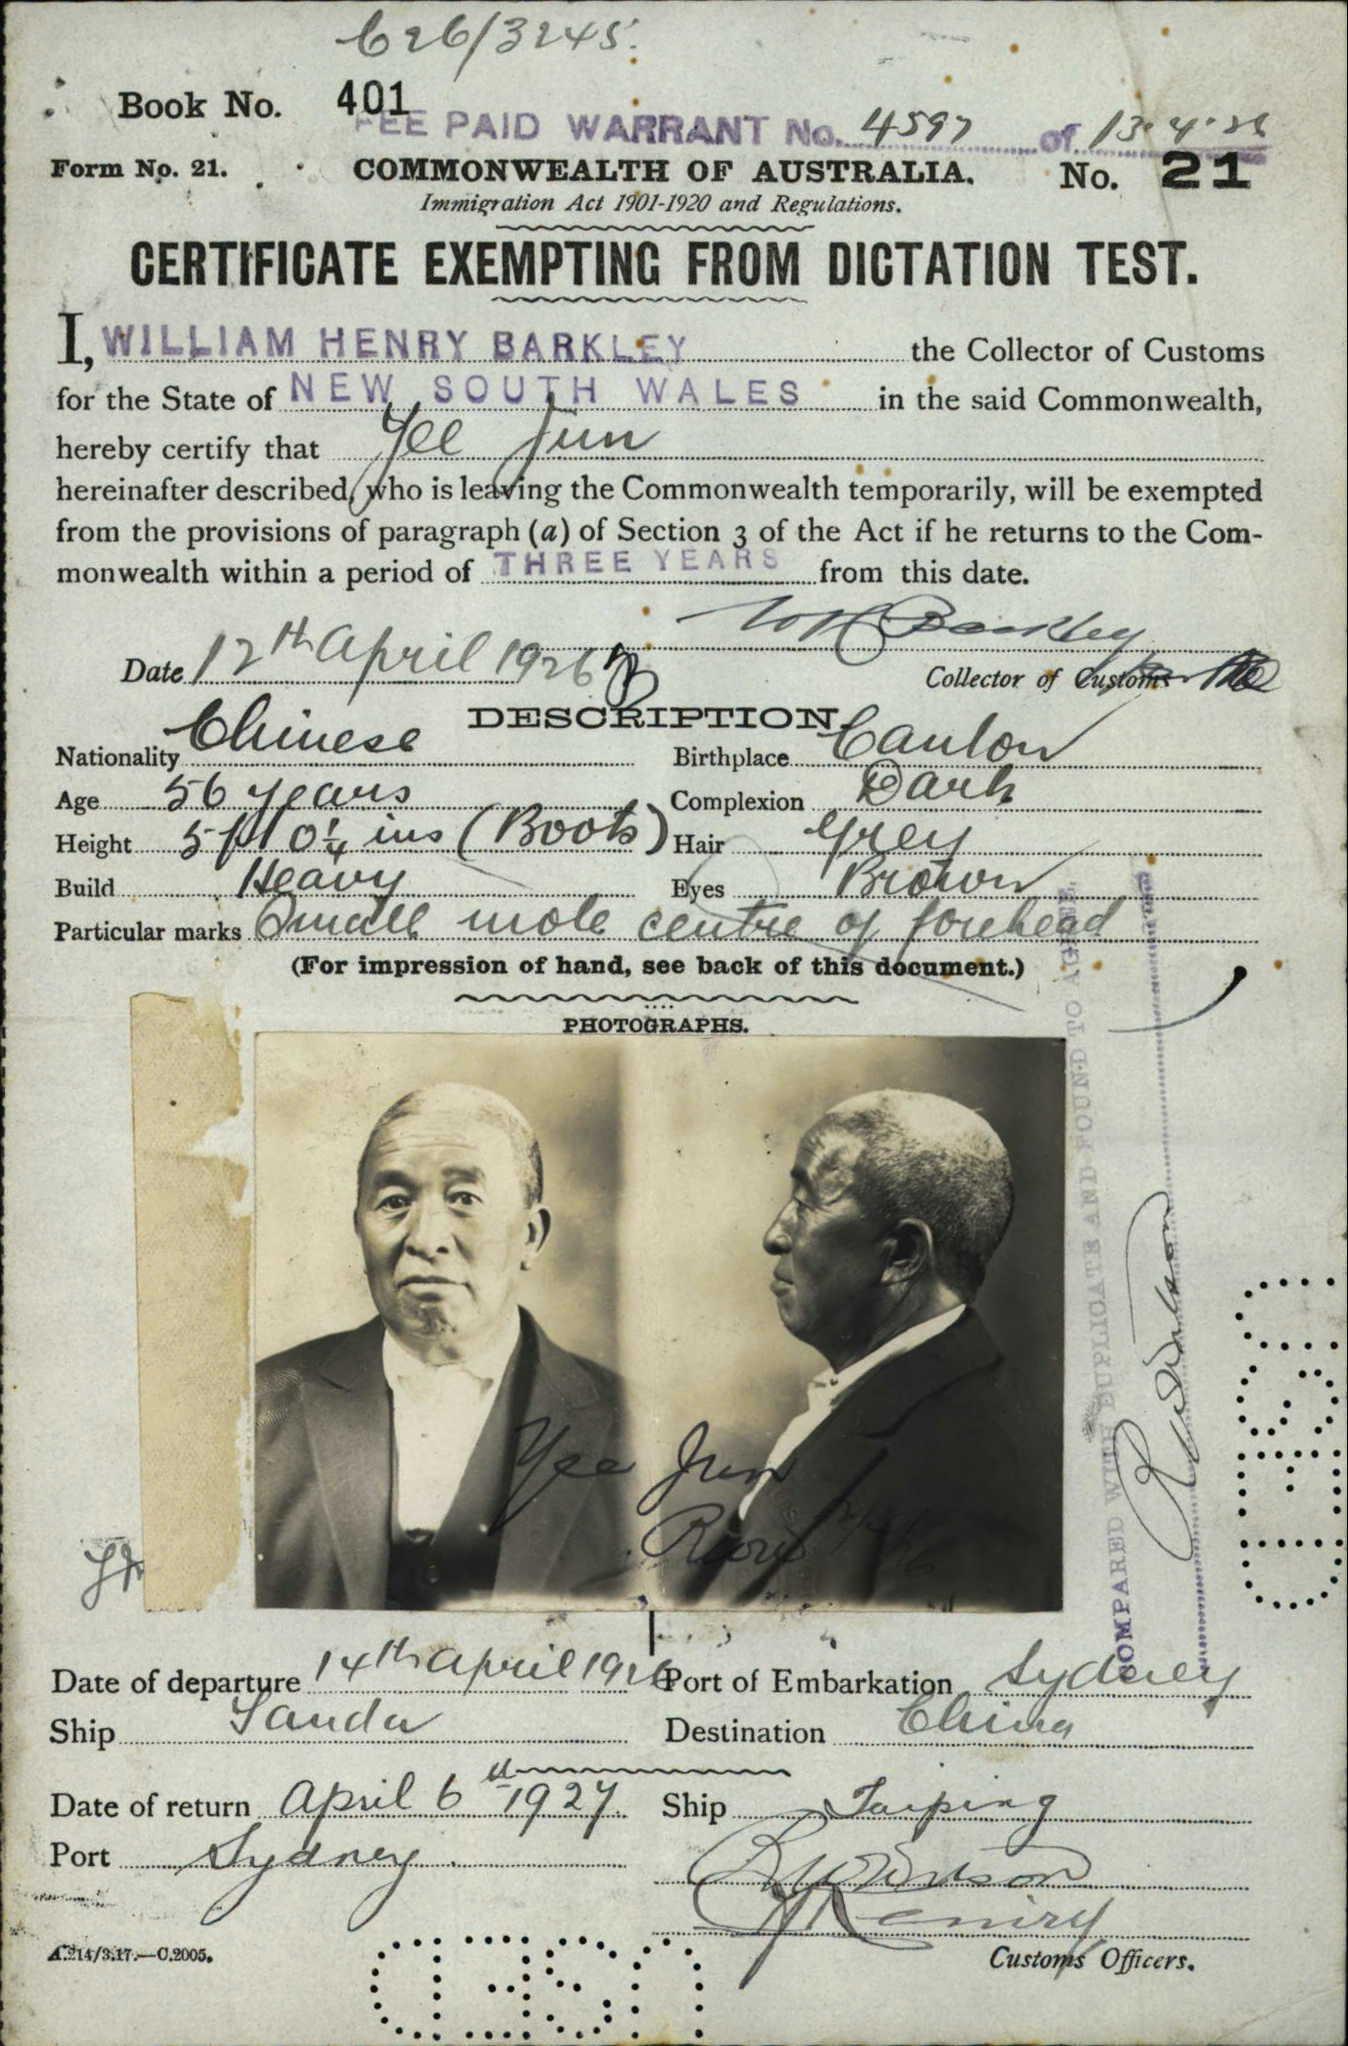 C26/3245.
Book No. 401
FEE PAID WARRANT No. 4597 of 13.4.26
Form No. 21. COMMONWEALTH OF AUSTRALIA. No. 21
Immigration Act 1901-1920 and Regulations.
CERTIFICATE EXEMPTING FROM DICTATION TEST.
I, WILLIAM HENRY BARKLEY the Collector of Customs
for the State of NEW SOUTH WALES in the said Commonwealth,
hereby certify that Yee Jun
hereinafter described, who is leaving the Commonwealth temporarily, will be exempted
from the provisions of paragraph (a) of Section 3 of the Act if he returns to the Com-
monwealth within a period of THREE YEARS from this date.
W H Barkley
Date 12th April 1926 Collector of Customs
DESCRIPTION.
Nationality Chinese Birthplace Canton
Age 56 years Complexion Dark
Height 5 ft 0¼ ins (Boots) Hair Grey
Build Heavy Eyes Brown
Particular marks Small mole centre of forehead
(For impression of hand, see back of this document.)
PHOTOGRAPHS.
Yee Jun
COMPARED WITH DUPLICATE AND FOUND TO AGREE.
Date of departure 14th April 1926 Port of Embarkation Sydney
Ship Tanda Destination China
Date of return April 6th 1927 Ship Taiping
Port Sydney.
Customs Officers.
A.214/3.17.—C.2005.
USED